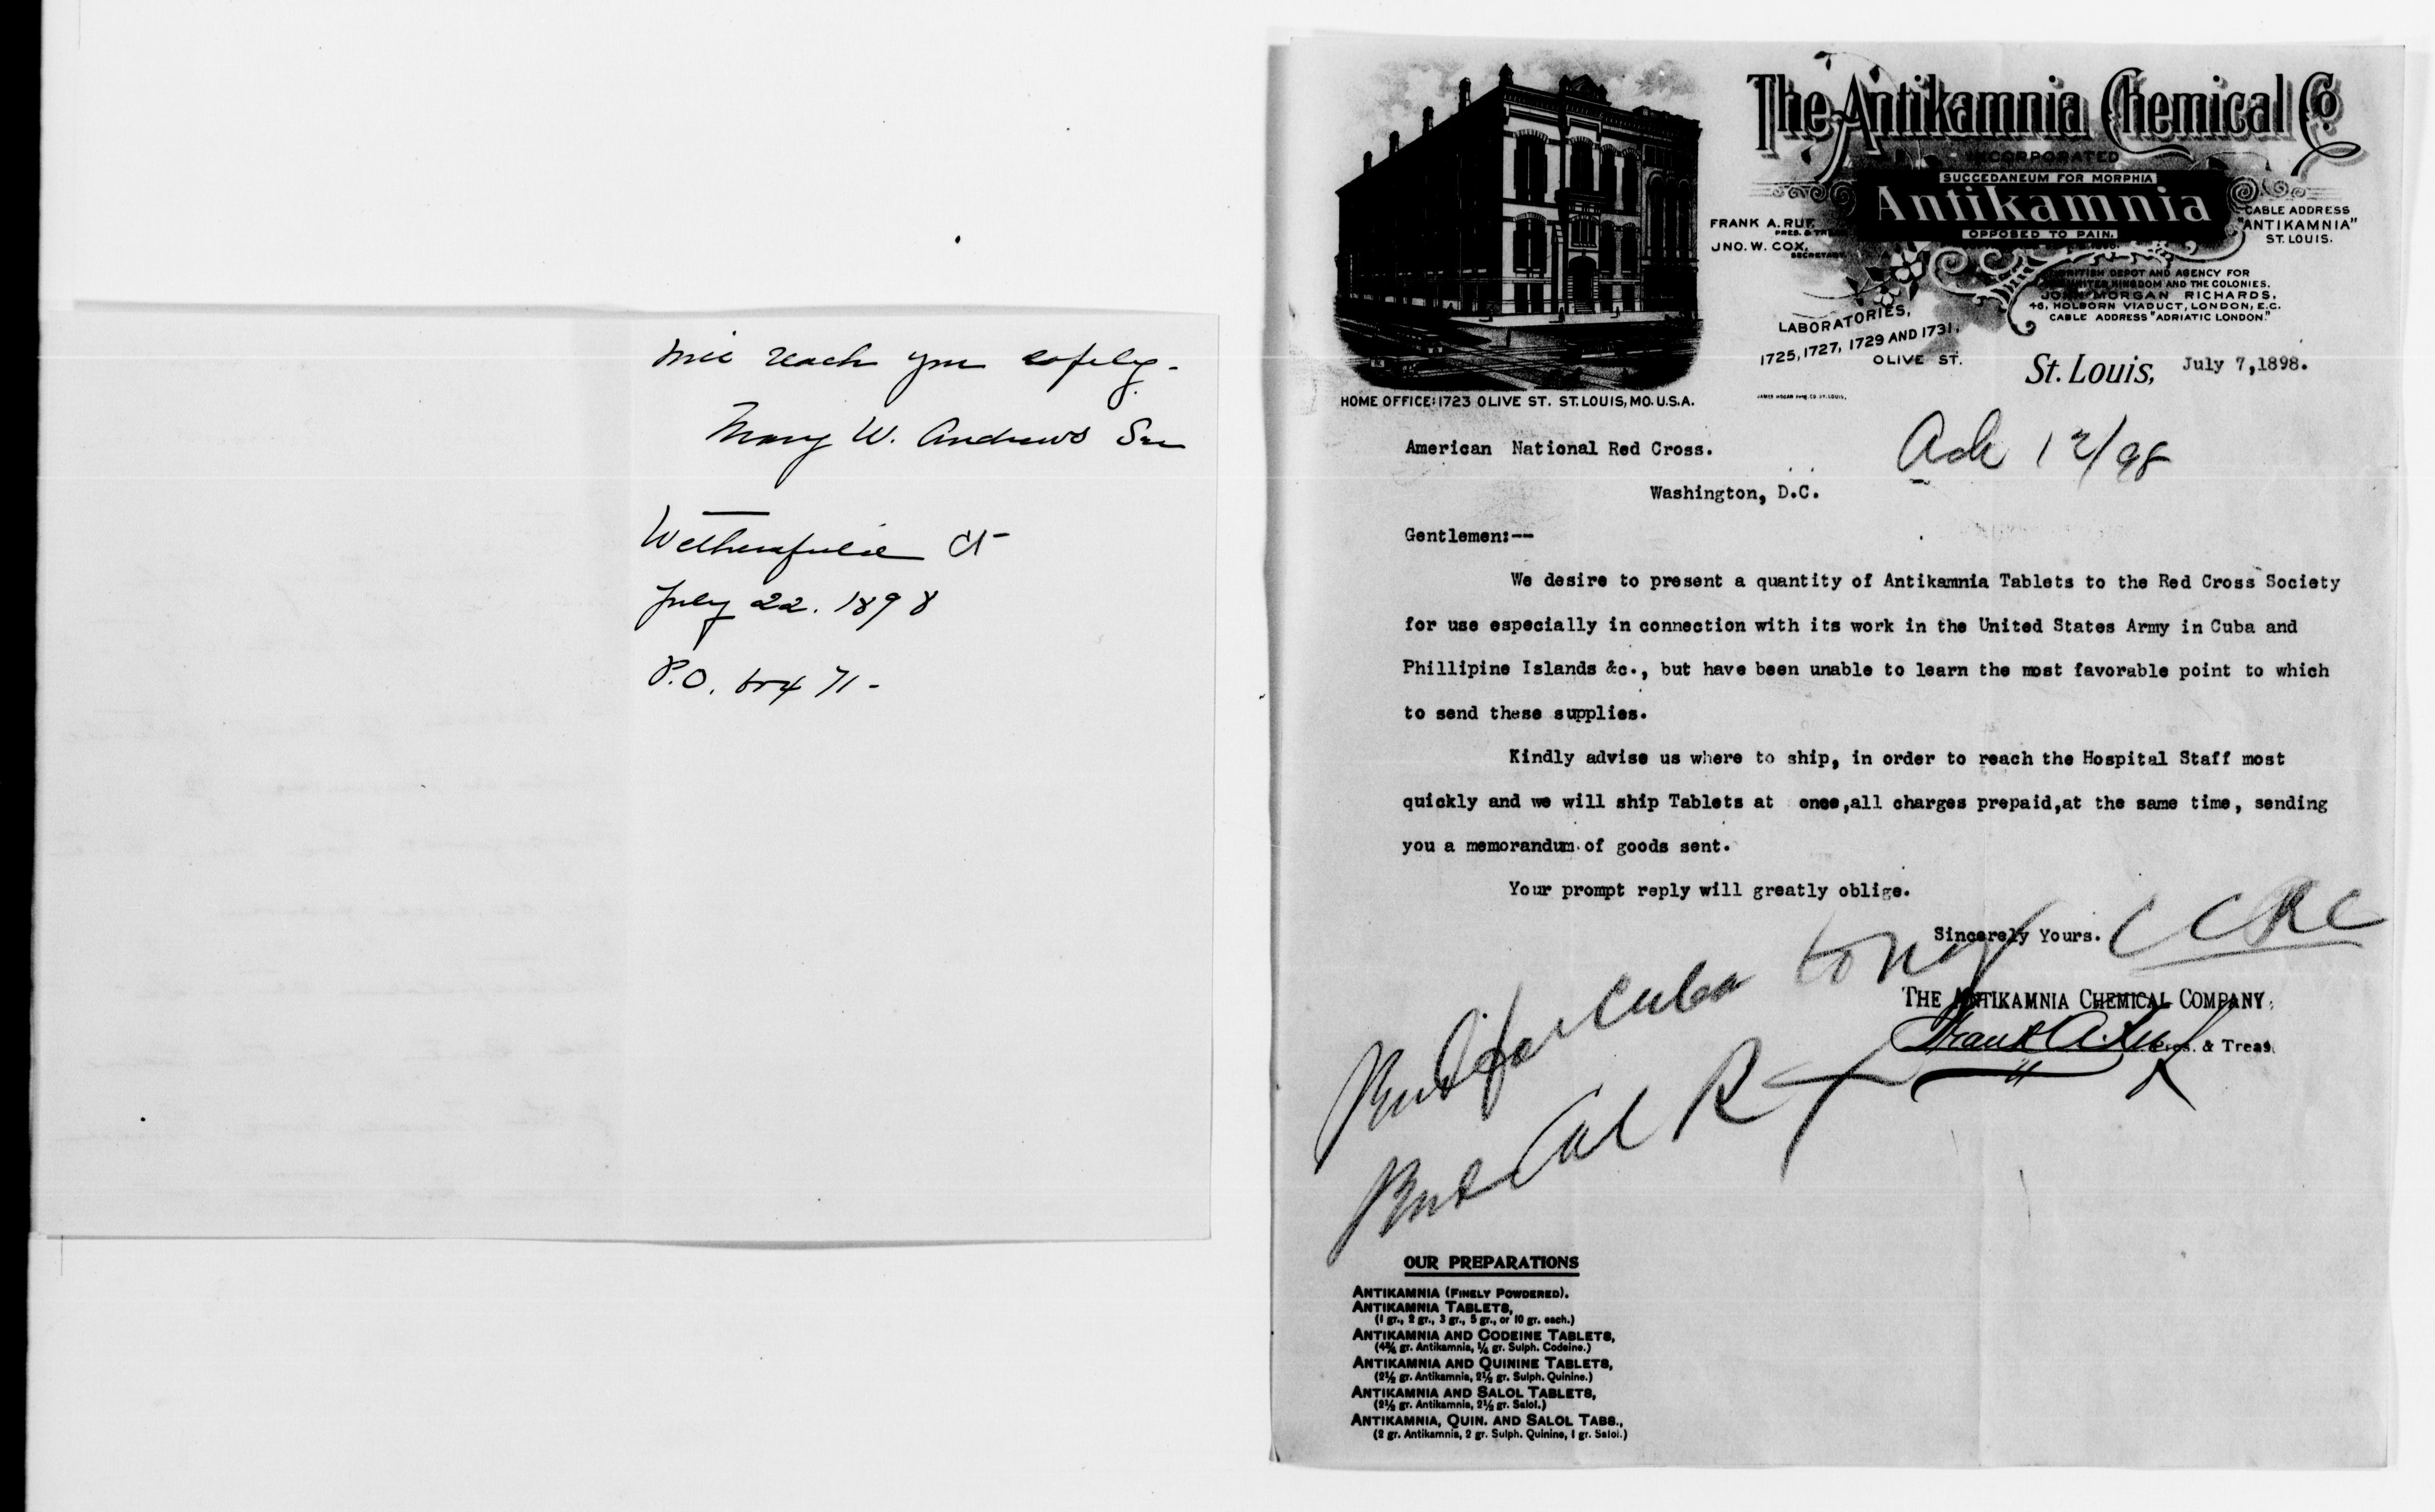 will reach you safely.
Mary W. Andrews Sec
Wethersfield Ct
July 22. 1898
P.O. box 71-
The Antikamnia Chemical Co
INCORPORATED
SUCCEDANEUM FOR MORPHIA
Antikamnia
OPPOSED TO PAIN.
FRANK A. RUF,
PRES. & TREAS.
JNO. W. COX,
SECRETARY.
CABLE ADDRESS
"ANTIKAMNIA"
ST. LOUIS.
BRITISH DEPOT AND AGENCY FOR
UNITED KINGDOM AND THE COLONIES.
JOHN MORGAN RICHARDS,
46, HOLBORN VIADUCT, LONDON, E.C.
CABLE ADDRESS "ADRIATIC LONDON."
LABORATORIES,
1725, 1727, 1729 AND 1731,
OLIVE ST.
HOME OFFICE: 1723 OLIVE ST. ST. LOUIS, MO. U.S.A.
St. Louis, July 7,1898.
Ack 12/98
American National Red Cross.
Washington, D.C.
Gentlemen:--
We desire to present a quantity of Antikamnia Tablets to the Red Cross Society
for use especially in connection with its work in the United States Army in Cuba and
Phillipine Islands &c., but have been unable to learn the most favorable point to which
to send these supplies.
Kindly advise us where to ship, in order to reach the Hospital Staff most
quickly and we will ship Tablets at once,all charges prepaid,at the same time, sending
you a memorandum of goods sent.
Your prompt reply will greatly oblige.
Sincerely Yours.
C C R C
THE ANTIKAMNIA CHEMICAL COMPANY,
Frank A. Ruf Pres. & Treas.
for Cuba to
Cal R
OUR PREPARATIONS
ANTIKAMNIA (FINELY POWDERED).
ANTIKAMNIA TABLETS,
(1 gr., 2 gr., 3 gr., 5 gr., or 10 gr. each.)
ANTIKAMNIA AND CODEINE TABLETS,
(4¾ gr. Antikamnia, ¼ gr. Sulph. Codeine.)
ANTIKAMNIA AND QUININE TABLETS,
(2½ gr. Antikamnia, 2½ gr. Sulph. Quinine.)
ANTIKAMNIA AND SALOL TABLETS,
(2½ gr. Antikamnia, 2½ gr. Salol.)
ANTIKAMNIA, QUIN. AND SALOL TABS.,
(2 gr. Antikamnia, 2 gr. Sulph. Quinine, 1 gr. Salol.)